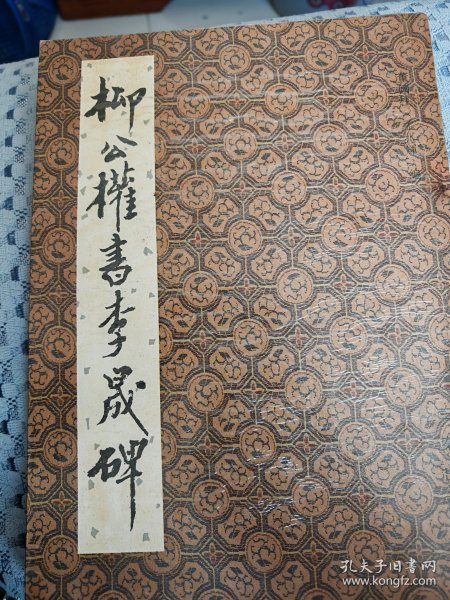 柳公權書李晟碑
孔夫子旧书网
www.kongfz.com